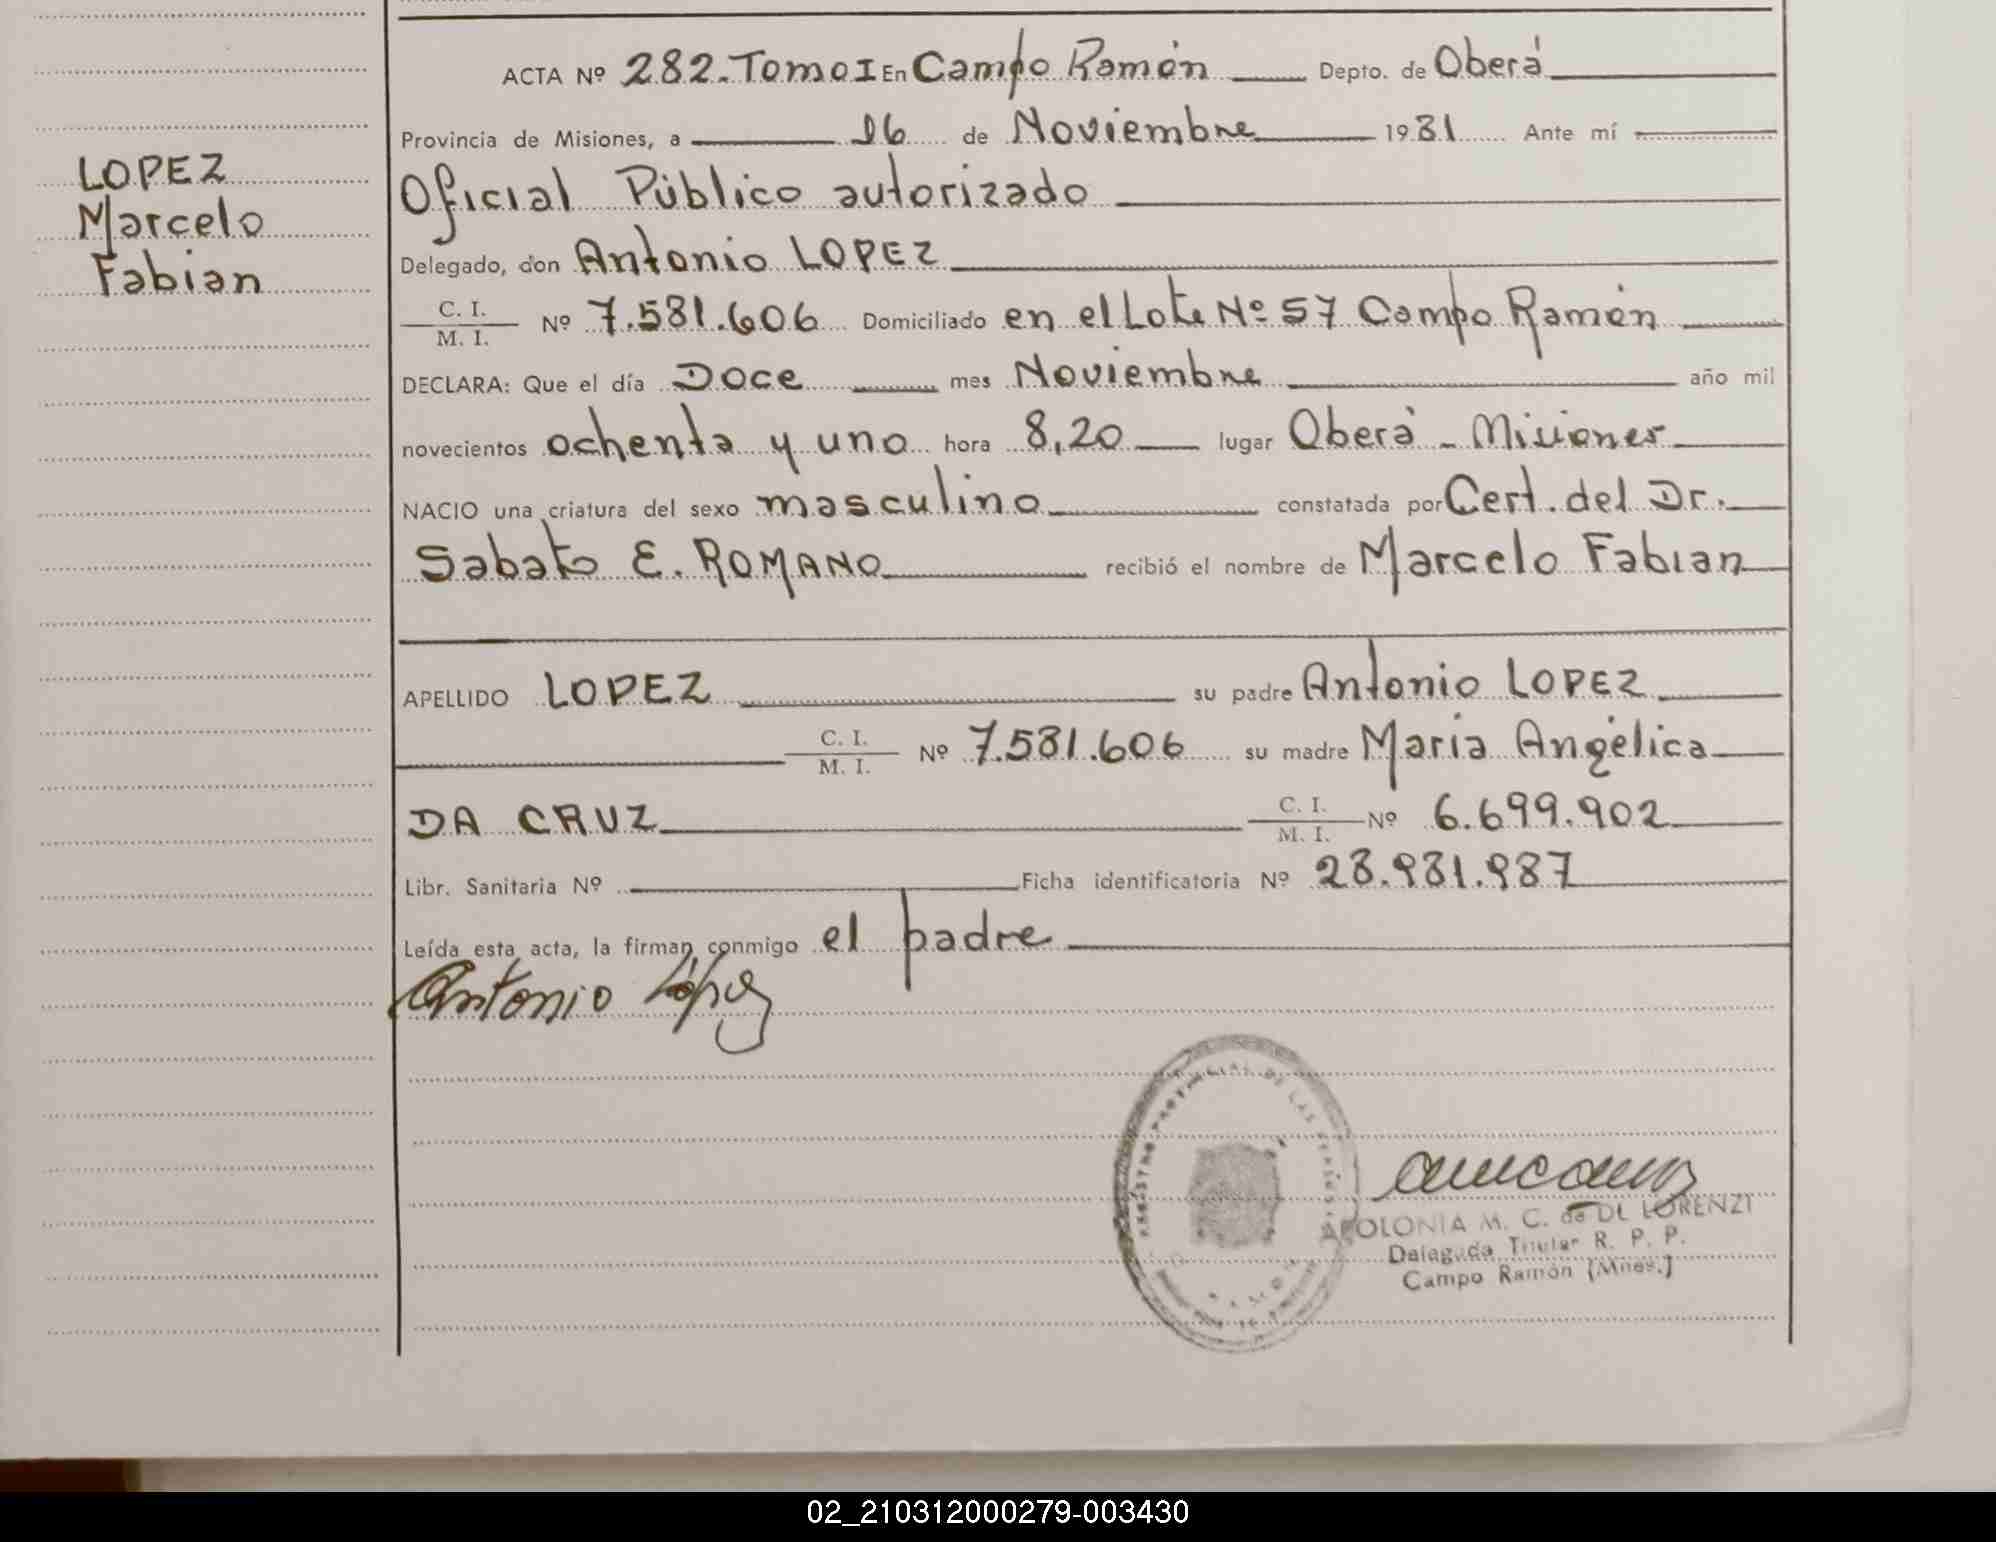 LOPEZ
Marcelo
Fabian
ACTA Nº 282. Tomo I En Campo Ramón Depto. de Oberá
Provincia de Misiones, a 16 de Noviembre 1981 Ante mí
Oficial Público autorizado
Delegado, don Antonio LOPEZ
C. I.
M. I. Nº 7.581.606 Domiciliado en el Lote Nº 57 Campo Ramón
DECLARA: Que el día Doce mes Noviembre año mil
novecientos ochenta y uno hora 8,20 lugar Oberá - Misiones
NACIO una criatura del sexo masculino constatada por Cert. del Dr.
Sabato E. ROMANO recibió el nombre de Marcelo Fabian
APELLIDO LOPEZ su padre Antonio LOPEZ
C. I.
M. I. Nº 7.581.606 su madre María Angélica
DA CRUZ C. I.
M. I. Nº 6.699.902
Libr. Sanitaria Nº Ficha identificatoria Nº 28.981.987
Leída esta acta, la firman conmigo el padre
Antonio López
REGISTRO PROVINCIAL DE LAS PERSONAS
APOLONIA M. C. de DE LORENZI
Delegada Titular R. P. P.
Campo Ramón (Mnes.)
02_210312000279-003430